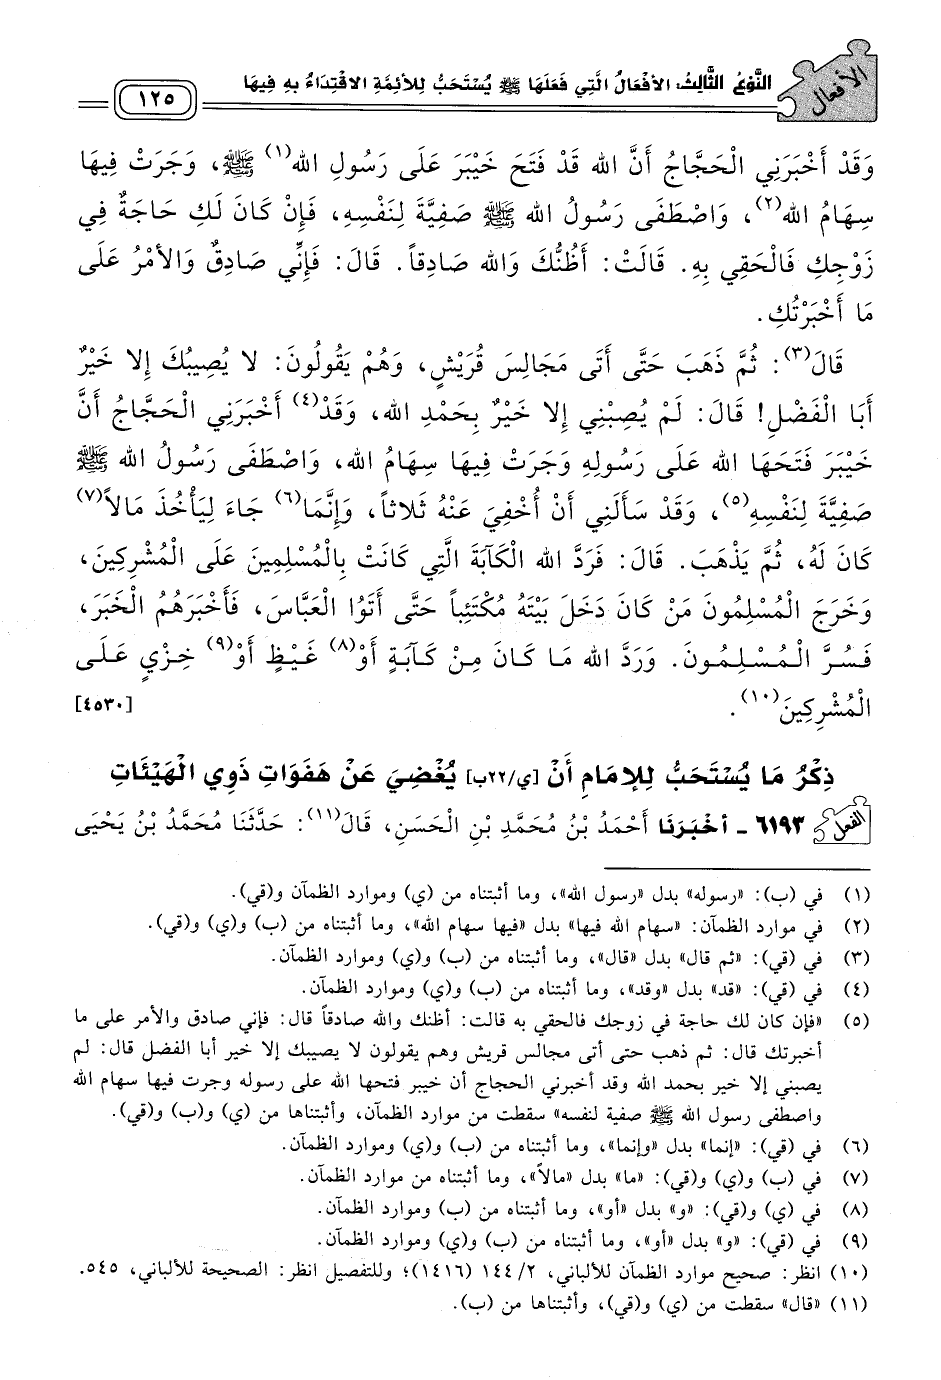 الأفعال
النَّوْعُ الثَّالِثُ: الأَفْعَالُ الَّتِي فَعَلَهَا ﷺ يُسْتَحَبُّ لِلأَئِمَّةِ الاقْتِدَاءُ بِهِ فِيهَا
١٢٥
وَقَدْ أَخْبَرَنِي الْحَجَّاجُ أَنَّ الله قَدْ فَتَحَ خَيْبَرَ عَلَى رَسُولِ الله(١) ﷺ، وَجَرَتْ فِيهَا
سِهَامُ الله(٢)، وَاصْطَفَى رَسُولُ الله ﷺ صَفِيَّةَ لِنَفْسِهِ، فَإِنْ كَانَ لَكِ حَاجَةٌ فِي
زَوْجِكِ فَالْحَقِي بِهِ. قَالَتْ: أَظُنُّكَ وَالله صَادِقاً. قَالَ: فَإِنِّي صَادِقٌ وَالأَمْرُ عَلَى
مَا أَخْبَرْتُكِ.
قَالَ(٣): ثُمَّ ذَهَبَ حَتَّى أَتَى مَجَالِسَ قُرَيْشٍ، وَهُمْ يَقُولُونَ: لا يُصِيبُكَ إِلا خَيْرٌ
أَبَا الْفَضْلِ! قَالَ: لَمْ يُصِبْنِي إِلا خَيْرٌ بِحَمْدِ الله، وَقَدْ(٤) أَخْبَرَنِي الْحَجَّاجُ أَنَّ
خَيْبَرَ فَتَحَهَا الله عَلَى رَسُولِهِ وَجَرَتْ فِيهَا سِهَامُ الله، وَاصْطَفَى رَسُولُ الله ﷺ
صَفِيَّةَ لِنَفْسِهِ(٥)، وَقَدْ سَأَلَنِي أَنْ أُخْفِيَ عَنْهُ ثَلاثاً، وَإِنَّمَا(٦) جَاءَ لِيَأْخُذَ مَالاً(٧)
كَانَ لَهُ، ثُمَّ يَذْهَبَ. قَالَ: فَرَدَّ الله الْكَآبَةَ الَّتِي كَانَتْ بِالْمُسْلِمِينَ عَلَى الْمُشْرِكِينَ،
وَخَرَجَ الْمُسْلِمُونَ مَنْ كَانَ دَخَلَ بَيْتَهُ مُكْتَئِباً حَتَّى أَتَوُا الْعَبَّاسَ، فَأَخْبَرَهُمُ الْخَبَرَ،
فَسُرَّ الْمُسْلِمُونَ. وَرَدَّ الله مَا كَانَ مِنْ كَآبَةٍ أَوْ(٨) غَيْظٍ أَوْ(٩) خِزْيٍ عَلَى
الْمُشْرِكِينَ(١٠). [٤٥٣٠]
ذِكْرُ مَا يُسْتَحَبُّ لِلإِمَامِ أَنْ [ي/٢٢ب] يُغْضِيَ عَنْ هَفَوَاتِ ذَوِي الْهَيْئَاتِ
الفعل ٦١٩٣ - أَخْبَرَنَا أَحْمَدُ بْنُ مُحَمَّدِ بْنِ الْحَسَنِ، قَالَ(١١): حَدَّثَنَا مُحَمَّدُ بْنُ يَحْيَى
(١) في (ب): «رسوله» بدل «رسول الله»، وما أثبتناه من (ي) وموارد الظمآن و(قي).
(٢) في موارد الظمآن: «سهام الله فيها» بدل «فيها سهام الله»، وما أثبتناه من (ب) و(ي) و(قي).
(٣) في (قي): «ثم قال» بدل «قال»، وما أثبتناه من (ب) و(ي) وموارد الظمآن.
(٤) في (قي): «قد» بدل «وقد»، وما أثبتناه من (ب) و(ي) وموارد الظمآن.
(٥) «فإن كان لك حاجة في زوجك فالحقي به قالت: أظنك والله صادقاً قال: فإني صادق والأمر على ما
أخبرتك قال: ثم ذهب حتى أتى مجالس قريش وهم يقولون لا يصيبك إلا خير أبا الفضل قال: لم
يصبني إلا خير بحمد الله وقد أخبرني الحجاج أن خيبر فتحها الله على رسوله وجرت فيها سهام الله
واصطفى رسول الله ﷺ صفية لنفسه» سقطت من موارد الظمآن، وأثبتناها من (ي) و(ب) و(قي).
(٦) في (قي): «إنما» بدل «وإنما»، وما أثبتناه من (ب) و(ي) وموارد الظمآن.
(٧) في (ب) و(ي) و(قي): «ما» بدل «مالاً»، وما أثبتناه من موارد الظمآن.
(٨) في (ي) و(قي): «و» بدل «أو»، وما أثبتناه من (ب) وموارد الظمآن.
(٩) في (قي): «و» بدل «أو»، وما أثبتناه من (ب) و(ي) وموارد الظمآن.
(١٠) انظر: صحيح موارد الظمآن للألباني، ٢/ ١٤٤ (١٤١٦)؛ وللتفصيل انظر: الصحيحة للألباني، ٥٤٥.
(١١) «قال» سقطت من (ي) و(قي)، وأثبتناها من (ب).